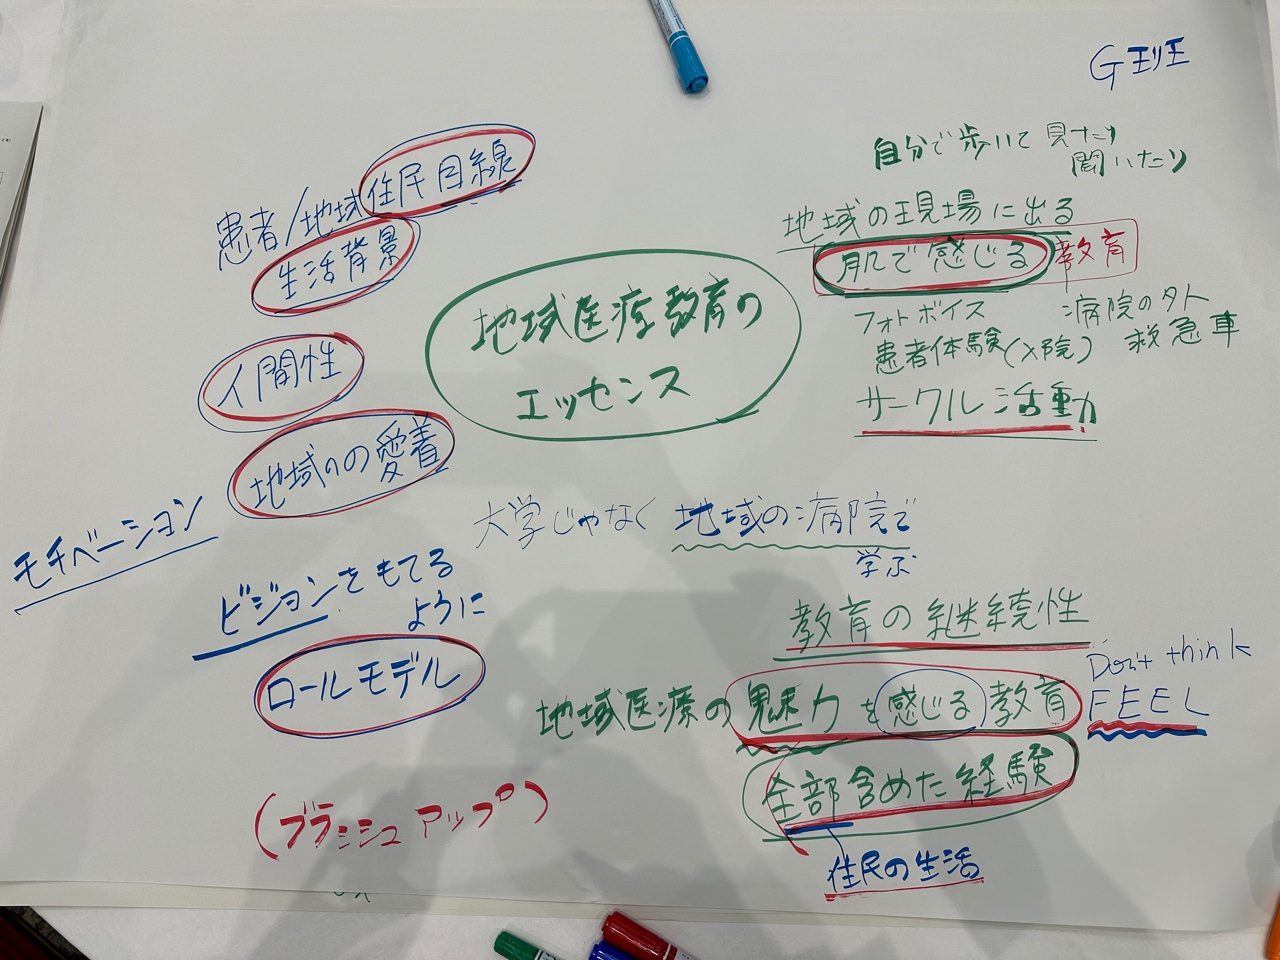 G班
自分で歩いて見たり
聞いたり
地域の現場に出る
肌で感じる教育
フォトボイス
病院の外
患者体験(入院)
救急車
サークル活動
患者/地域住民目線
生活背景
人間性
地域への愛着
モチベーション
地域医療教育の
エッセンス
大学じゃなく地域の病院で
学ぶ
ビジョンをもてる
ように
ロールモデル
(ブラッシュアップ)
教育の継続性
地域医療の魅力を感じる教育
Don't think
FEEL
全部含めた経験
住民の生活